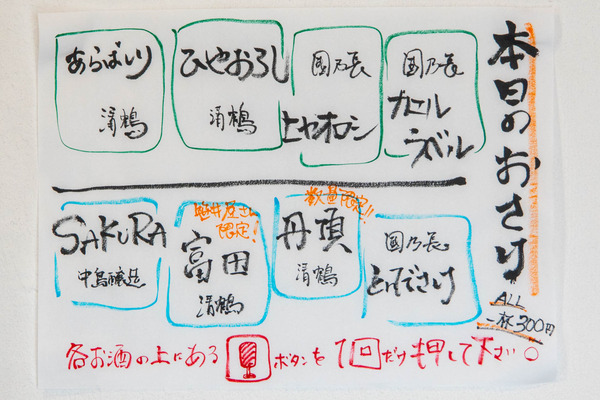 本日のおさけ
ALL
一杯300円
国乃長
カエル
ラベル
国乃長
ヒヤオロシ
ひやおろし
清鶴
あらばしり
清鶴
国乃長
数量限定!!
丹頂
清鶴
限定!
富田
清鶴
SAKURA
中島醸造
各お酒の上にある ボタンを1回だけ押して下さい。